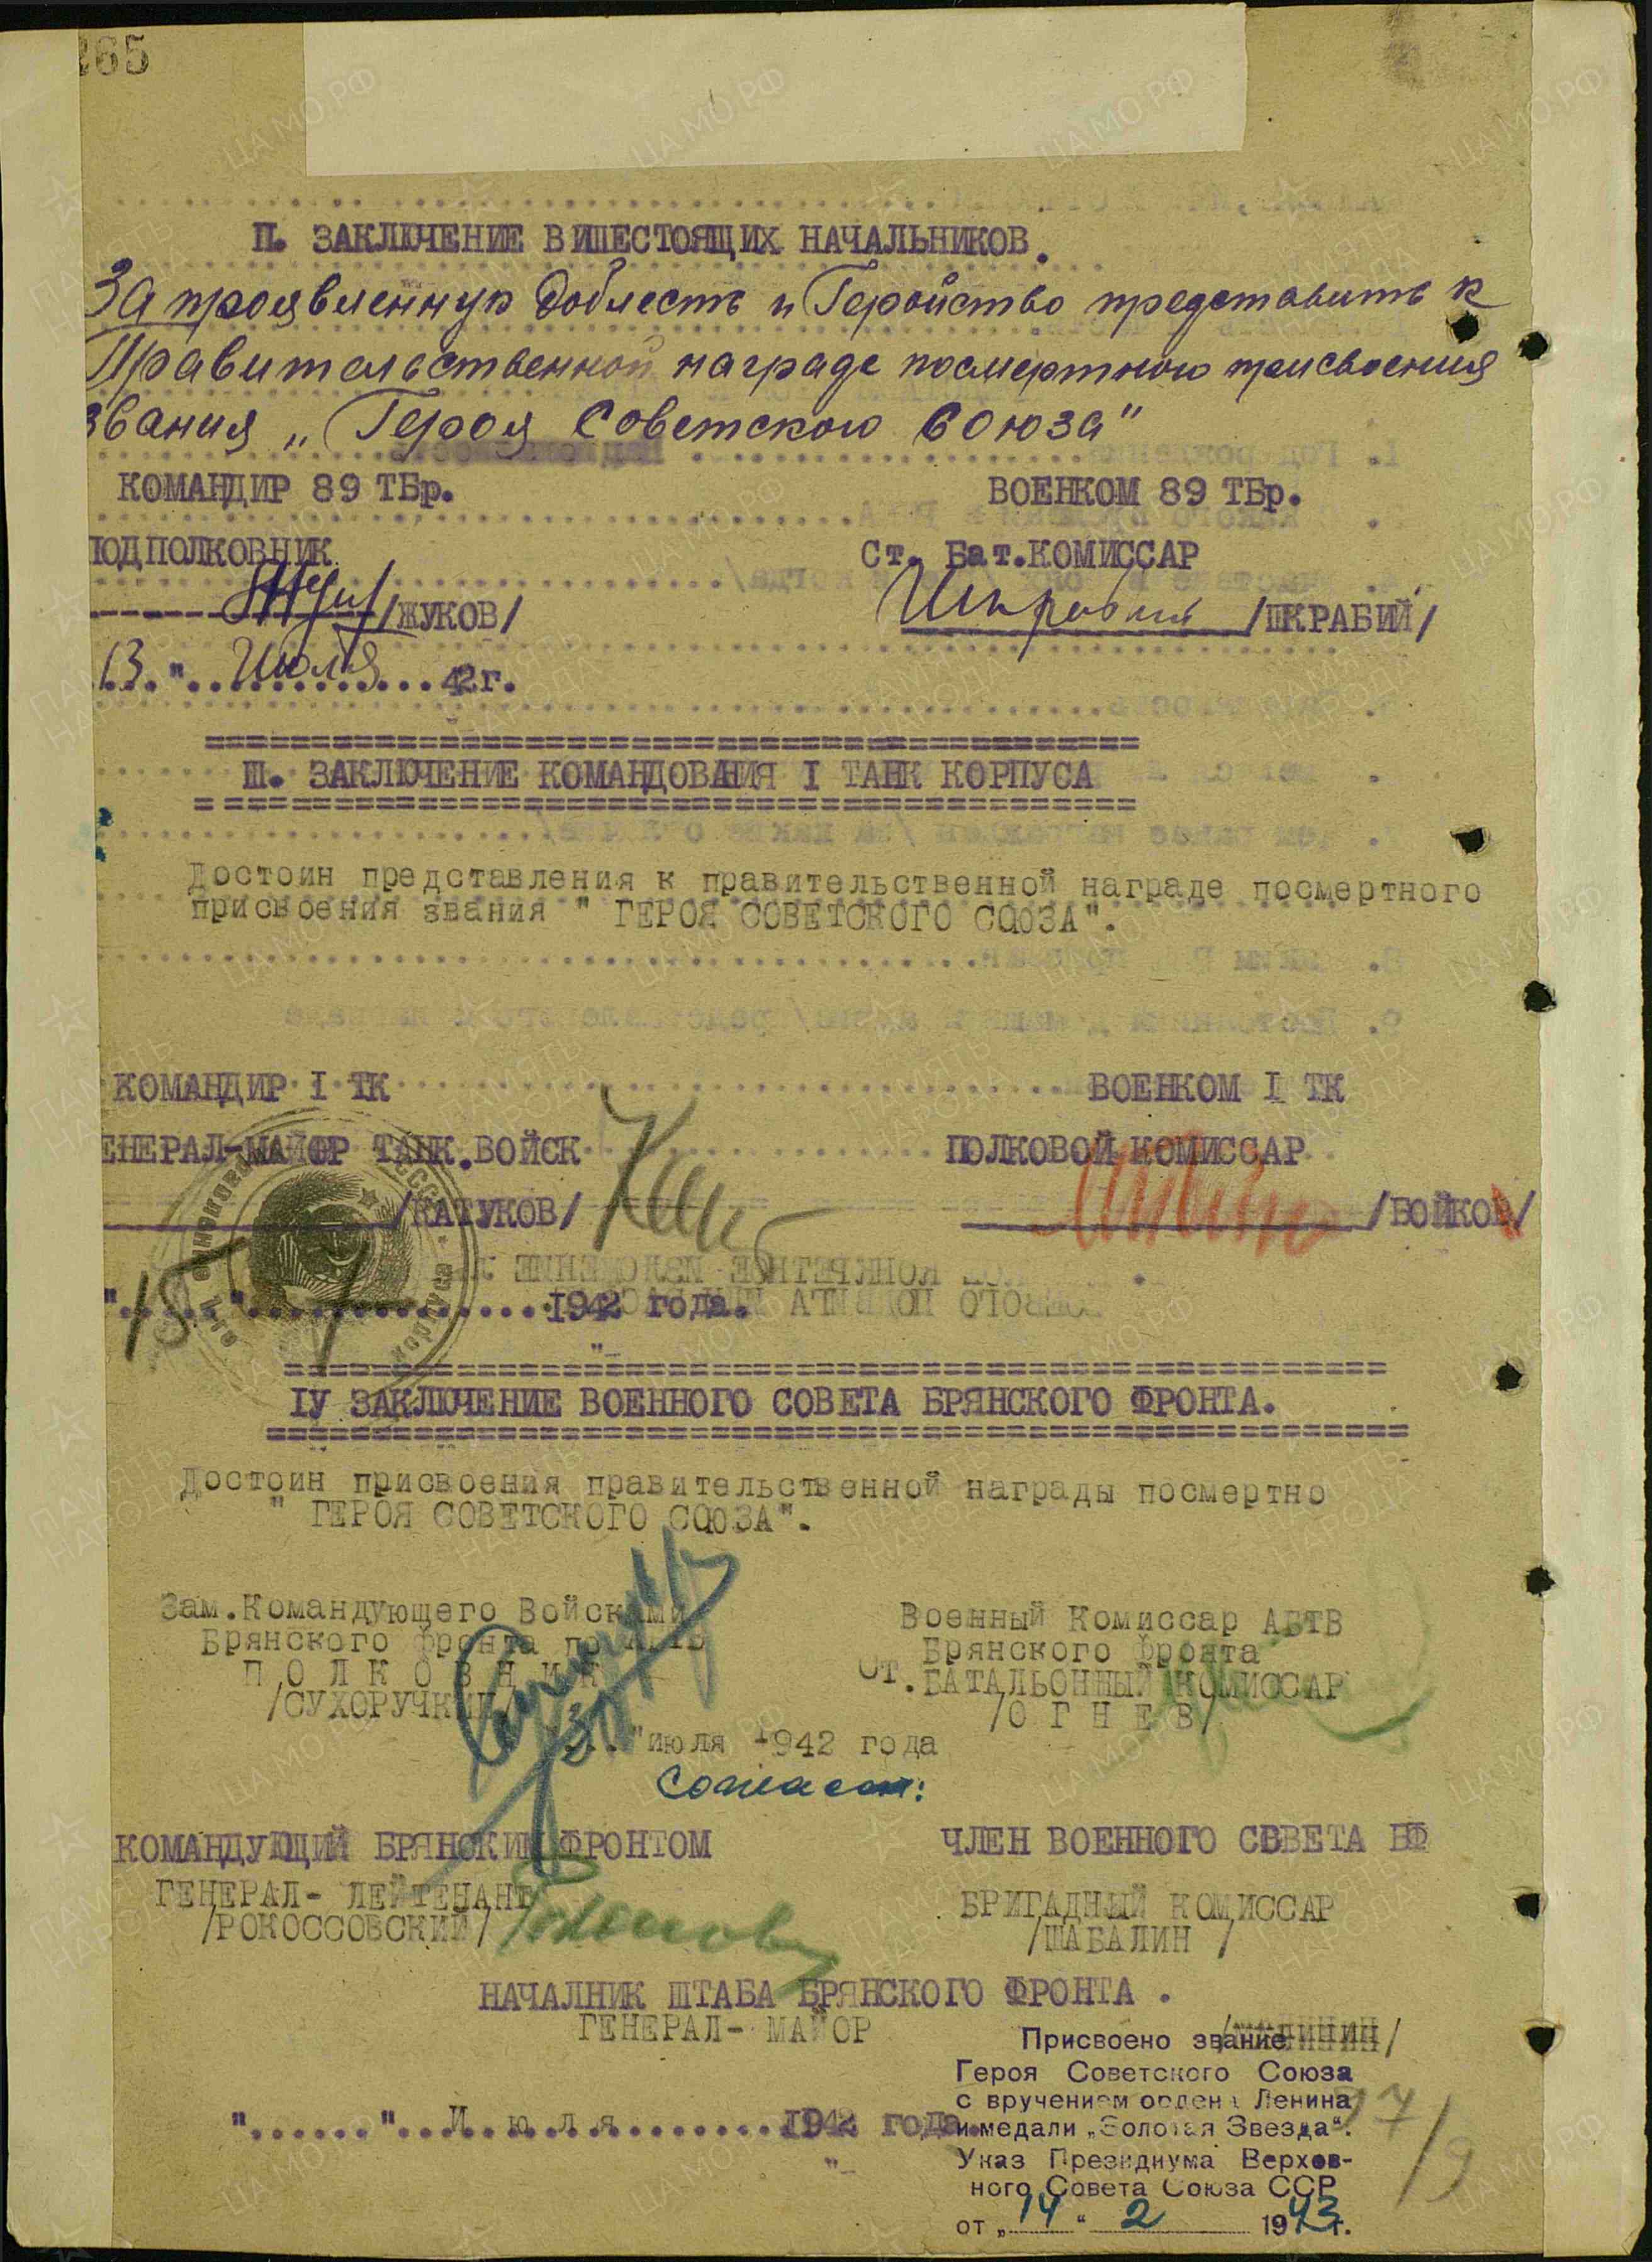 265
П. ЗАКЛЮЧЕНИЕ ВЫШЕСТОЯЩИХ НАЧАЛЬНИКОВ.
За проявленную доблесть и Геройство представить к
Правительственной награде посмертного присвоения
звания „Героя Советского Союза"
КОМАНДИР 89 ТБр. ВОЕНКОМ 89 ТБр.
ПОДПОЛКОВНИК Ст. Бат.КОМИССАР
/ЖУКОВ/ /ШКРАБИЙ/
13." Июля 42г.
Ш. ЗАКЛЮЧЕНИЕ КОМАНДОВАНИЯ I ТАНК КОРПУСА
Достоин представления к правительственной награде посмертного
присвоения звания " ГЕРОЯ СОВЕТСКОГО СОЮЗА".
КОМАНДИР I ТК ВОЕНКОМ I ТК
ЕНЕРАЛ-МАЙОР ТАНК.ВОЙСК ПОЛКОВОЙ КОМИССАР
/КАТУКОВ/ /БОЙКО/
"15" 7 1942 года.
IУ ЗАКЛЮЧЕНИЕ ВОЕННОГО СОВЕТА БРЯНСКОГО ФРОНТА.
Достоин присвоения правительственной награды посмертно
" ГЕРОЯ СОВЕТСКОГО СОЮЗА".
Зам.Командующего Войсками Военный Комиссар АБТВ
Брянского фронта по АБТВ Брянского фронта
П О Л К О В Н И К Ст.БАТАЛЬОННЫЙ КОМИССАР
/СУХОРУЧКИН/ /О Г Н Е В/
"июля 1942 года
Согласен:
КОМАНДУЮЩИЙ БРЯНСКИМ ФРОНТОМ ЧЛЕН ВОЕННОГО СОВЕТА БФ
ГЕНЕРАЛ- ЛЕЙТЕНАНТ БРИГАДНЫЙ КОМИССАР
/РОКОССОВСКИЙ/ /ШАБАЛИН /
НАЧАЛНИК ШТАБА БРЯНСКОГО ФРОНТА .
ГЕНЕРАЛ- МАЙОР
Присвоено звание
Героя Советского Союза
с вручением ордена Ленина
и медали „Золотая Звезда".
Указ Президиума Верхов-
ного Совета Союза ССР
от „14" 2 1943г.
"......"..И ю л я........1942 года.